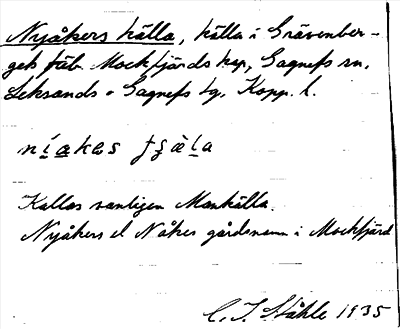 Nyåkers källa, källa i Grävenber-
gets fäb. Mockfjärds kap, Gagnefs sn,
Leksands o Gagnefs tg. Kopp. l.
Kallas vanligen Monkälla.
Nyåkers el Nåkes gårdsnamn i Mockfjärd
C. I. Ståhle 1935